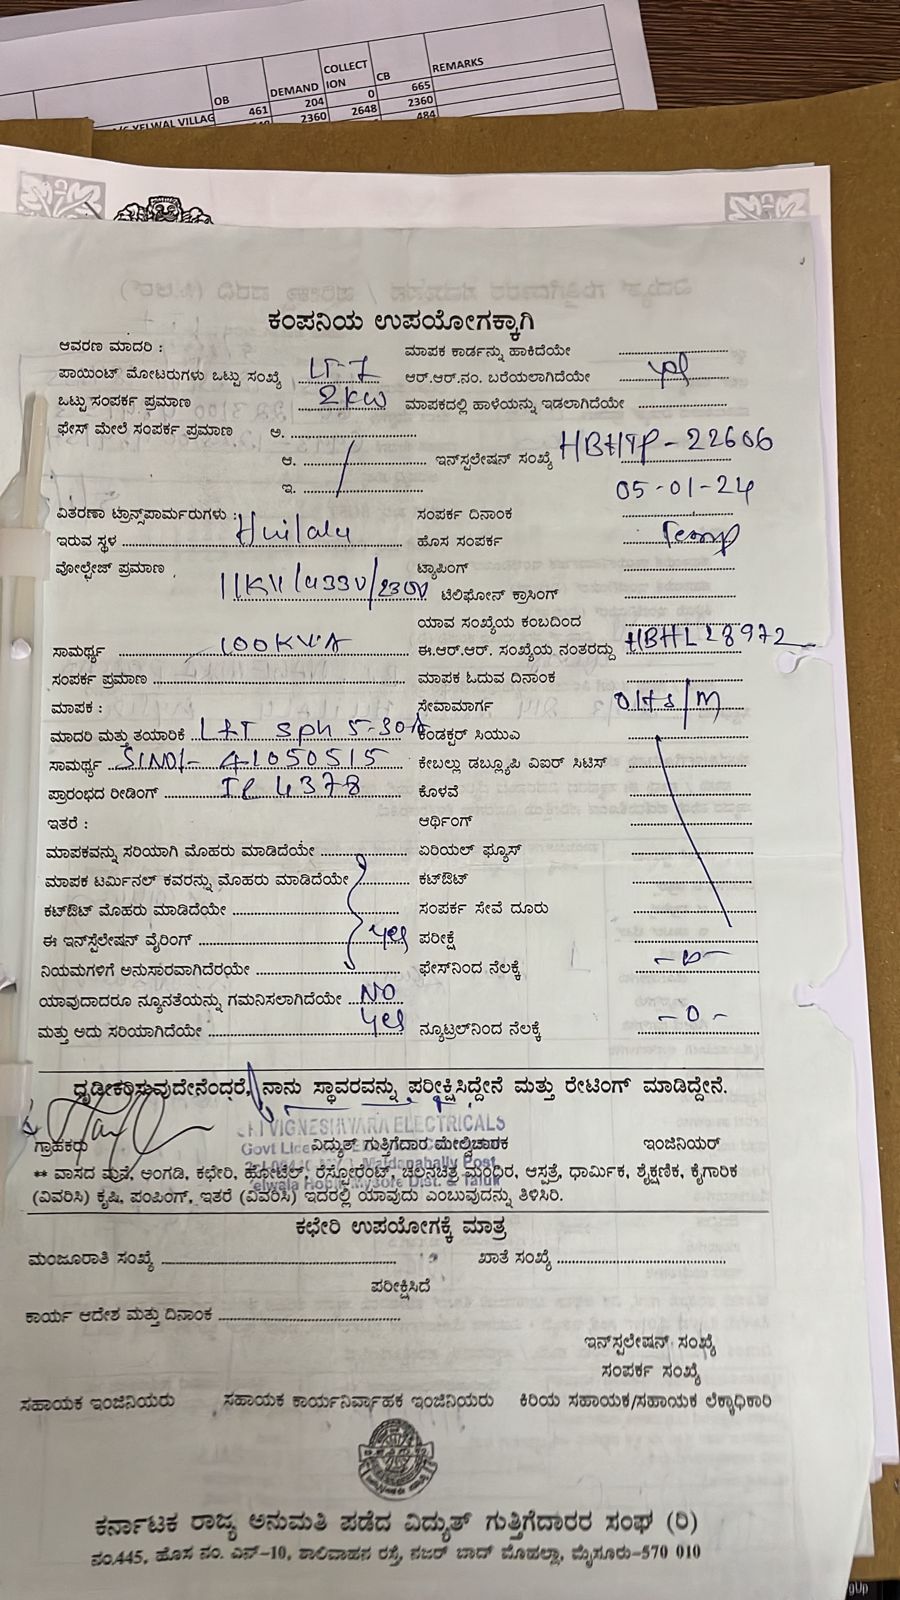 OB DEMAND COLLECT ION CB REMARKS
461 204 0 665
YELWAL VILLAG 2360 2648 2360
484
ಕಂಪನಿಯ ಉಪಯೋಗಕ್ಕಾಗಿ
ಆವರಣ ಮಾದರಿ : ಮಾಪಕ ಕಾರ್ಡನ್ನು ಹಾಕಿದೆಯೇ
ಪಾಯಿಂಟ್ ಮೋಟರುಗಳು ಒಟ್ಟು ಸಂಖ್ಯೆ LT-7 ಆರ್.ಆರ್.ನಂ. ಬರೆಯಲಾಗಿದೆಯೇ
ಒಟ್ಟು ಸಂಪರ್ಕ ಪ್ರಮಾಣ 2KW ಮಾಪಕದಲ್ಲಿ ಹಾಳೆಯನ್ನು ಇಡಲಾಗಿದೆಯೇ
ಫೇಸ್ ಮೇಲೆ ಸಂಪರ್ಕ ಪ್ರಮಾಣ ಅ.
ಆ. ಇನ್‌ಸ್ಪಲೇಷನ್ ಸಂಖ್ಯೆ HBHTP-22606
ಇ. 05-01-24
ವಿತರಣಾ ಟ್ರಾನ್ಸ್‌ಪಾರ್ಮರುಗಳು : ಸಂಪರ್ಕ ದಿನಾಂಕ
ಇರುವ ಸ್ಥಳ Huilalu ಹೊಸ ಸಂಪರ್ಕ Temp
ವೋಲ್ಟೇಜ್ ಪ್ರಮಾಣ 11KV/433V/230V ಟ್ಯಾಪಿಂಗ್
ಟೆಲಿಫೋನ್ ಕ್ರಾಸಿಂಗ್
ಯಾವ ಸಂಖ್ಯೆಯ ಕಂಬದಿಂದ
ಸಾಮರ್ಥ್ಯ 100KVA ಈ.ಆರ್.ಆರ್. ಸಂಖ್ಯೆಯ ನಂತರದ್ದು HBHL28972
ಸಂಪರ್ಕ ಪ್ರಮಾಣ ಮಾಪಕ ಓದುವ ದಿನಾಂಕ
ಮಾಪಕ : ಸೇವಾಮಾರ್ಗ OHS/M
ಮಾದರಿ ಮತ್ತು ತಯಾರಿಕೆ L&T Sph 5-30A ಕಂಡಕ್ಟರ್ ಸಿಯುಎ
ಸಾಮರ್ಥ್ಯ SlNo/- 41050515 ಕೇಬಲ್ಲು ಡಬ್ಲ್ಯೂಪಿ ವಿಐರ್ ಸಿಟಿಸ್
ಪ್ರಾರಂಭದ ರೀಡಿಂಗ್ IR 4378 ಕೊಳವೆ
ಇತರೆ : ಆರ್ಥಿಂಗ್
ಮಾಪಕವನ್ನು ಸರಿಯಾಗಿ ಮೊಹರು ಮಾಡಿದೆಯೇ ಏರಿಯಲ್ ಫ್ಯೂಸ್
ಮಾಪಕ ಟರ್ಮಿನಲ್ ಕವರನ್ನು ಮೊಹರು ಮಾಡಿದೆಯೇ ಕಟ್‌ಔಟ್
ಕಟ್‌ಔಟ್ ಮೊಹರು ಮಾಡಿದೆಯೇ ಸಂಪರ್ಕ ಸೇವೆ ದೂರು
ಈ ಇನ್‌ಸ್ಪೆಲೇಷನ್ ವೈರಿಂಗ್ yes ಪರೀಕ್ಷೆ
ನಿಯಮಗಳಿಗೆ ಅನುಸಾರವಾಗಿದೆರಯೇ ಫೇಸ್‌ನಿಂದ ನೆಲಕ್ಕೆ -0-
ಯಾವುದಾದರೂ ನ್ಯೂನತೆಯನ್ನು ಗಮನಿಸಲಾಗಿದೆಯೇ NO
ಮತ್ತು ಅದು ಸರಿಯಾಗಿದೆಯೇ Yes ನ್ಯೂಟ್ರಲ್‌ನಿಂದ ನೆಲಕ್ಕೆ -0-
ಧೃಡೀಕರಿಸುವುದೇನೆಂದರೆ, ನಾನು ಸ್ಥಾವರವನ್ನು ಪರೀಕ್ಷಿಸಿದ್ದೇನೆ ಮತ್ತು ರೇಟಿಂಗ್ ಮಾಡಿದ್ದೇನೆ.
VIGNESHWARA ELECTRICALS
ಗ್ರಾಹಕರು ವಿದ್ಯುತ್ ಗುತ್ತಿಗೆದಾರ ಮೇಲ್ವಿಚಾರಕ ಇಂಜಿನಿಯರ್
** ವಾಸದ ಮನೆ, ಅಂಗಡಿ, ಕಛೇರಿ, ಹೋಟೆಲ್, ರೆಸ್ಟೋರೆಂಟ್, ಚಲನಚಿತ್ರ ಮಂಧಿರ, ಆಸ್ಪತ್ರೆ, ಧಾರ್ಮಿಕ, ಶೈಕ್ಷಣಿಕ, ಕೈಗಾರಿಕ
(ವಿವರಿಸಿ) ಕೃಷಿ, ಪಂಪಿಂಗ್, ಇತರೆ (ವಿವರಿಸಿ) ಇದರಲ್ಲಿ ಯಾವುದು ಎಂಬುವುದನ್ನು ತಿಳಿಸಿರಿ.
ಕಛೇರಿ ಉಪಯೋಗಕ್ಕೆ ಮಾತ್ರ
ಮಂಜೂರಾತಿ ಸಂಖ್ಯೆ ಖಾತೆ ಸಂಖ್ಯೆ
ಪರೀಕ್ಷಿಸಿದೆ
ಕಾರ್ಯ ಆದೇಶ ಮತ್ತು ದಿನಾಂಕ
ಇನ್‌ಸ್ಪಲೇಷನ್ ಸಂಖ್ಯೆ
ಸಂಪರ್ಕ ಸಂಖ್ಯೆ
ಸಹಾಯಕ ಇಂಜಿನಿಯರು ಸಹಾಯಕ ಕಾರ್ಯನಿರ್ವಾಹಕ ಇಂಜಿನಿಯರು ಕಿರಿಯ ಸಹಾಯಕ/ಸಹಾಯಕ ಲೆಕ್ಕಾಧಿಕಾರಿ
ಕರ್ನಾಟಕ ರಾಜ್ಯ ಅನುಮತಿ ಪಡೆದ ವಿದ್ಯುತ್ ಗುತ್ತಿಗೆದಾರರ ಸಂಘ (ರಿ)
ನಂ.445, ಹೊಸ ನಂ. ಎನ್-10, ಶಾಲಿವಾಹನ ರಸ್ತೆ, ನಜರ್ ಬಾದ್ ಮೊಹಲ್ಲಾ, ಮೈಸೂರು-570 010